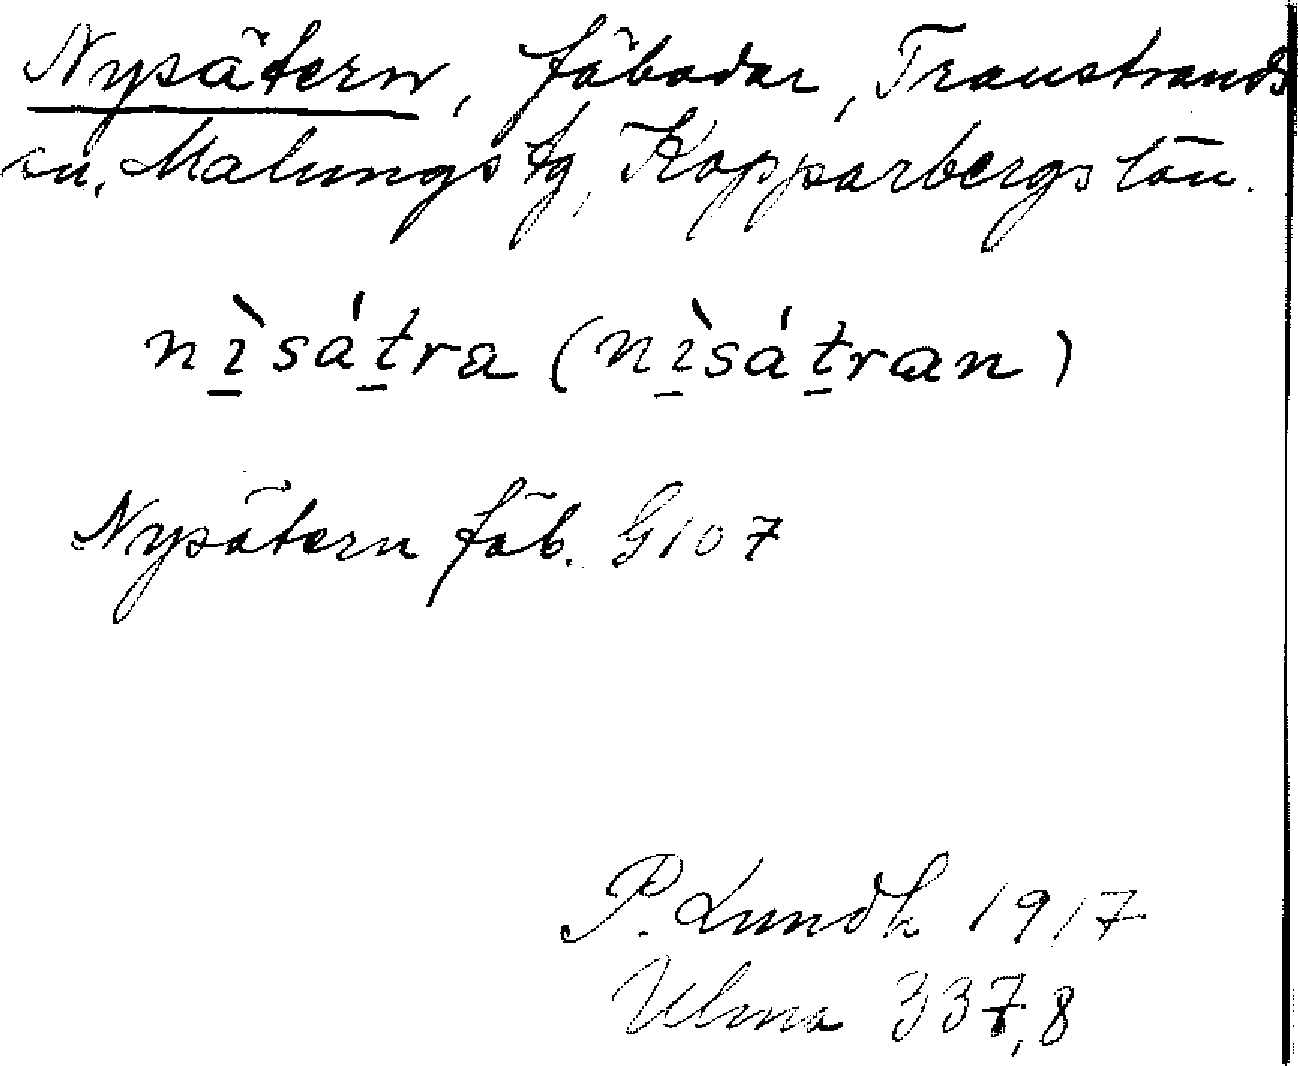 Nysätern, fäbodar, Transtrands
sn. Malungs tg, Kopparbergs län.
nı̲̀sát̲ra (nı̲̀sát̲ran)
Nysätern fäb. G107
P. Lundh 1917
Ulma 337,8